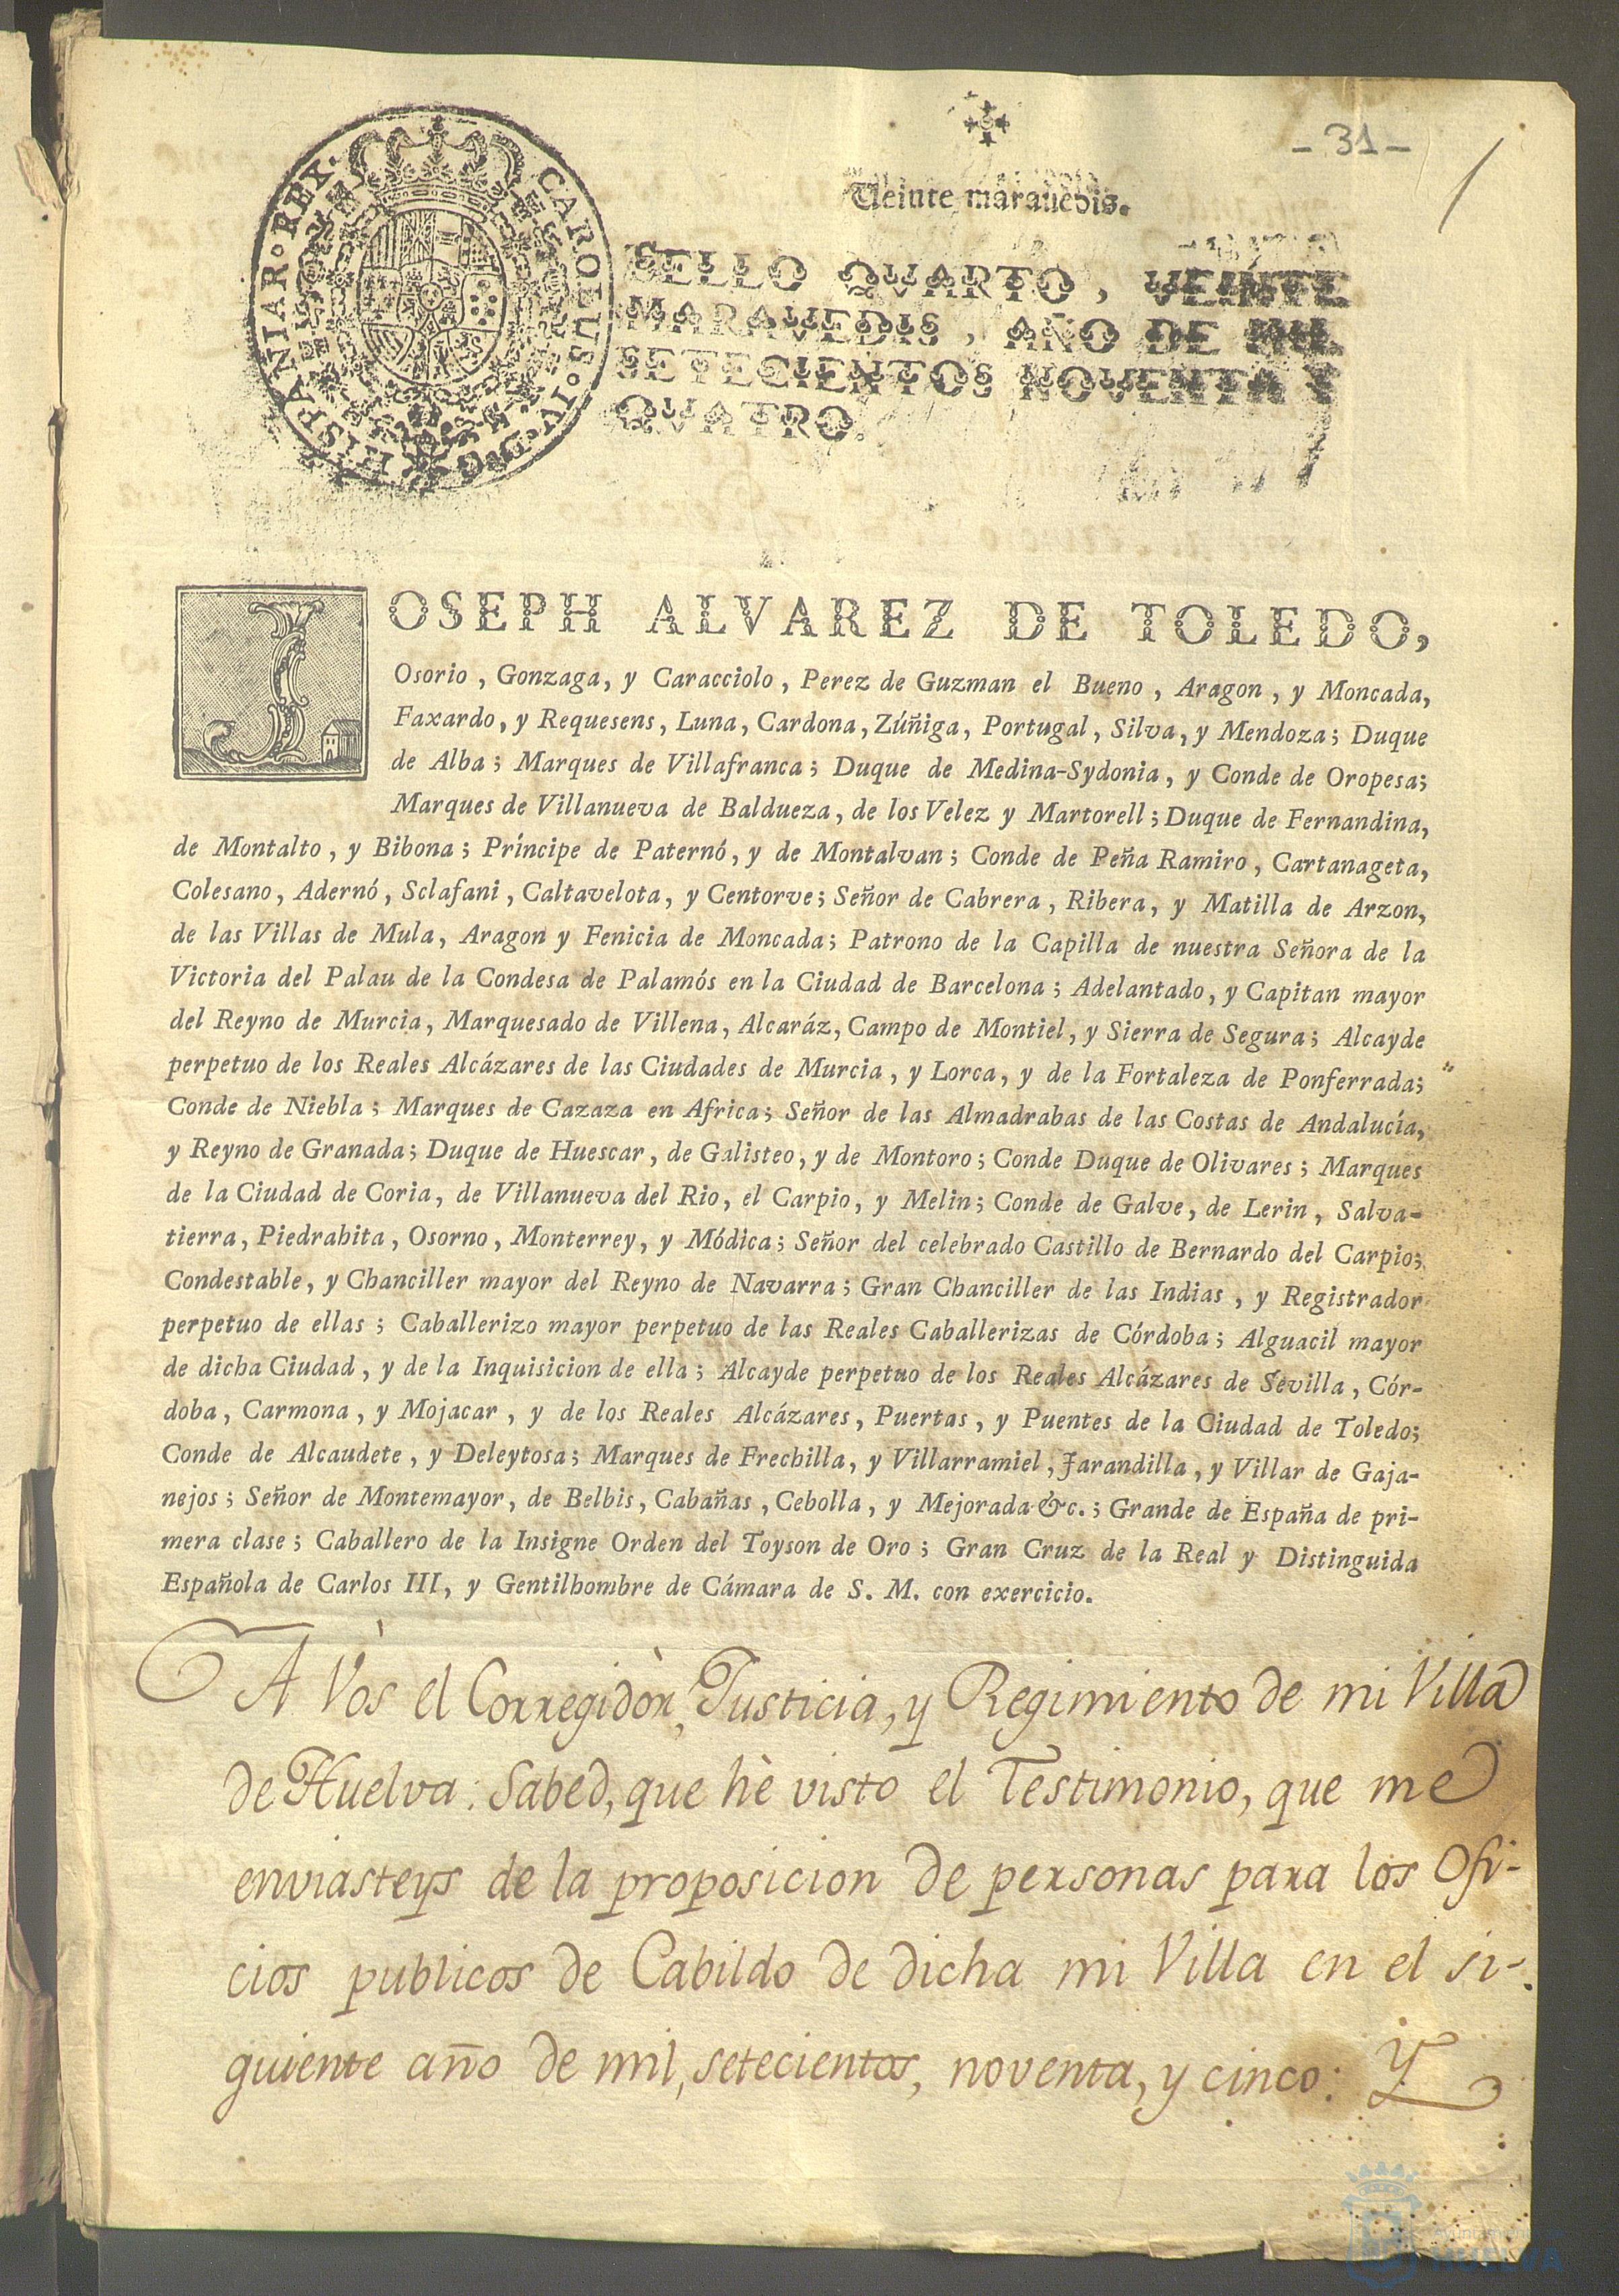 - 31 -
Veinte maravedis.
CAROLUS·IV·D·G·HISPANIAR·REX·
SELLO QVARTO, VEINTE
MARAVEDIS, AÑO DE MIL
SETECIENTOS NOVENTA Y
QVATRO.
JOSEPH ALVAREZ DE TOLEDO,
Osorio, Gonzaga, y Caracciolo, Perez de Guzman el Bueno, Aragon, y Moncada,
Faxardo, y Requesens, Luna, Cardona, Zúñiga, Portugal, Silva, y Mendoza; Duque
de Alba; Marques de Villafranca; Duque de Medina-Sydonia, y Conde de Oropesa;
Marques de Villanueva de Baldueza, de los Velez y Martorell; Duque de Fernandina,
de Montalto, y Bibona; Príncipe de Paternó, y de Montalvan; Conde de Peña Ramiro, Cartanageta,
Colesano, Adernó, Sclafani, Caltavelota, y Centorve; Señor de Cabrera, Ribera, y Matilla de Arzon,
de las Villas de Mula, Aragon y Fenicia de Moncada; Patrono de la Capilla de nuestra Señora de la
Victoria del Palau de la Condesa de Palamós en la Ciudad de Barcelona; Adelantado, y Capitan mayor
del Reyno de Murcia, Marquesado de Villena, Alcaráz, Campo de Montiel, y Sierra de Segura; Alcayde
perpetuo de los Reales Alcázares de las Ciudades de Murcia, y Lorca, y de la Fortaleza de Ponferrada;
Conde de Niebla; Marques de Cazaza en Africa; Señor de las Almadrabas de las Costas de Andalucía,
y Reyno de Granada; Duque de Huescar, de Galisteo, y de Montoro; Conde Duque de Olivares; Marques
de la Ciudad de Coria, de Villanueva del Rio, el Carpio, y Melin; Conde de Galve, de Lerin, Salva-
tierra, Piedrahita, Osorno, Monterrey, y Módica; Señor del celebrado Castillo de Bernardo del Carpio;
Condestable, y Chanciller mayor del Reyno de Navarra; Gran Chanciller de las Indias, y Registrador
perpetuo de ellas; Caballerizo mayor perpetuo de las Reales Caballerizas de Córdoba; Alguacil mayor
de dicha Ciudad, y de la Inquisicion de ella; Alcayde perpetuo de los Reales Alcázares de Sevilla, Cór-
doba, Carmona, y Mojacar, y de los Reales Alcázares, Puertas, y Puentes de la Ciudad de Toledo;
Conde de Alcaudete, y Deleytosa; Marques de Frechilla, y Villarramiel, Jarandilla, y Villar de Gaja-
nejos; Señor de Montemayor, de Belbis, Cabañas, Cebolla, y Mejorada &c.; Grande de España de pri-
mera clase; Caballero de la Insigne Orden del Toyson de Oro; Gran Cruz de la Real y Distinguida
Española de Carlos III, y Gentilhombre de Cámara de S. M. con exercicio.
A Vòs el Corregidòr, Justicia, y Regimiento de mi Villa
de Huelva: Sabed, que hè visto el Testimonio, que me
enviasteys de la proposicion de personas para los Ofi-
cios publicos de Cabildo de dicha mi Villa en el si-
guiente año de mil, setecientos, noventa, y cinco: Y
Ayuntamiento de
HUELVA